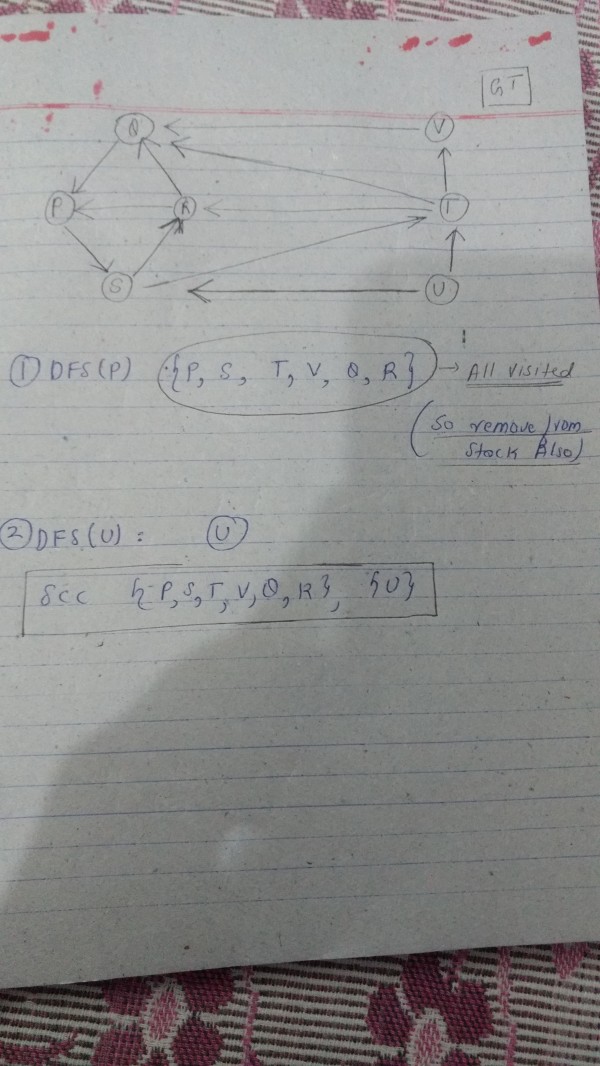 GT
Q V
P R T
S U
① DFS(P) {P, S, T, V, Q, R} → All visited
(So remove from
Stack Also)
② DFS(U) : U
SCC {P,S,T,V,Q,R}, {U}